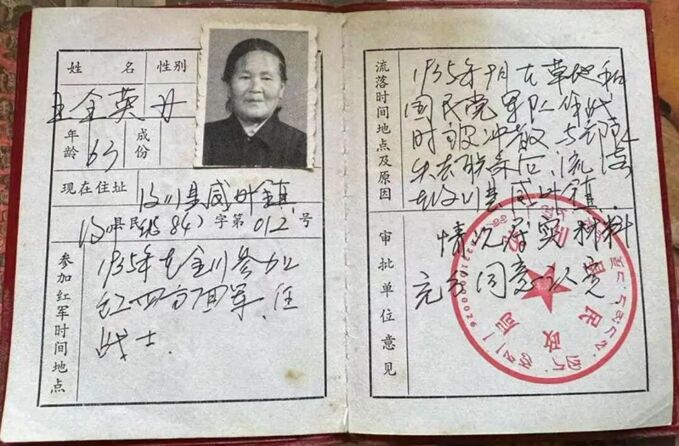 姓名 性别
王全英 女
年龄 63 成份
现在住址 汶川县威州镇
汶川县民政(84)字第012号
参加红军时间地点
1935年在金川参加
红四方面军,任
战士.
流落时间地点及原因
1935年十月在草地和
国民党军队作战
时被冲散,与部队
失去联系后,流落
在汶川县威州镇.
审批单位意见
情况属实 材料
充分 同意认定
民政局